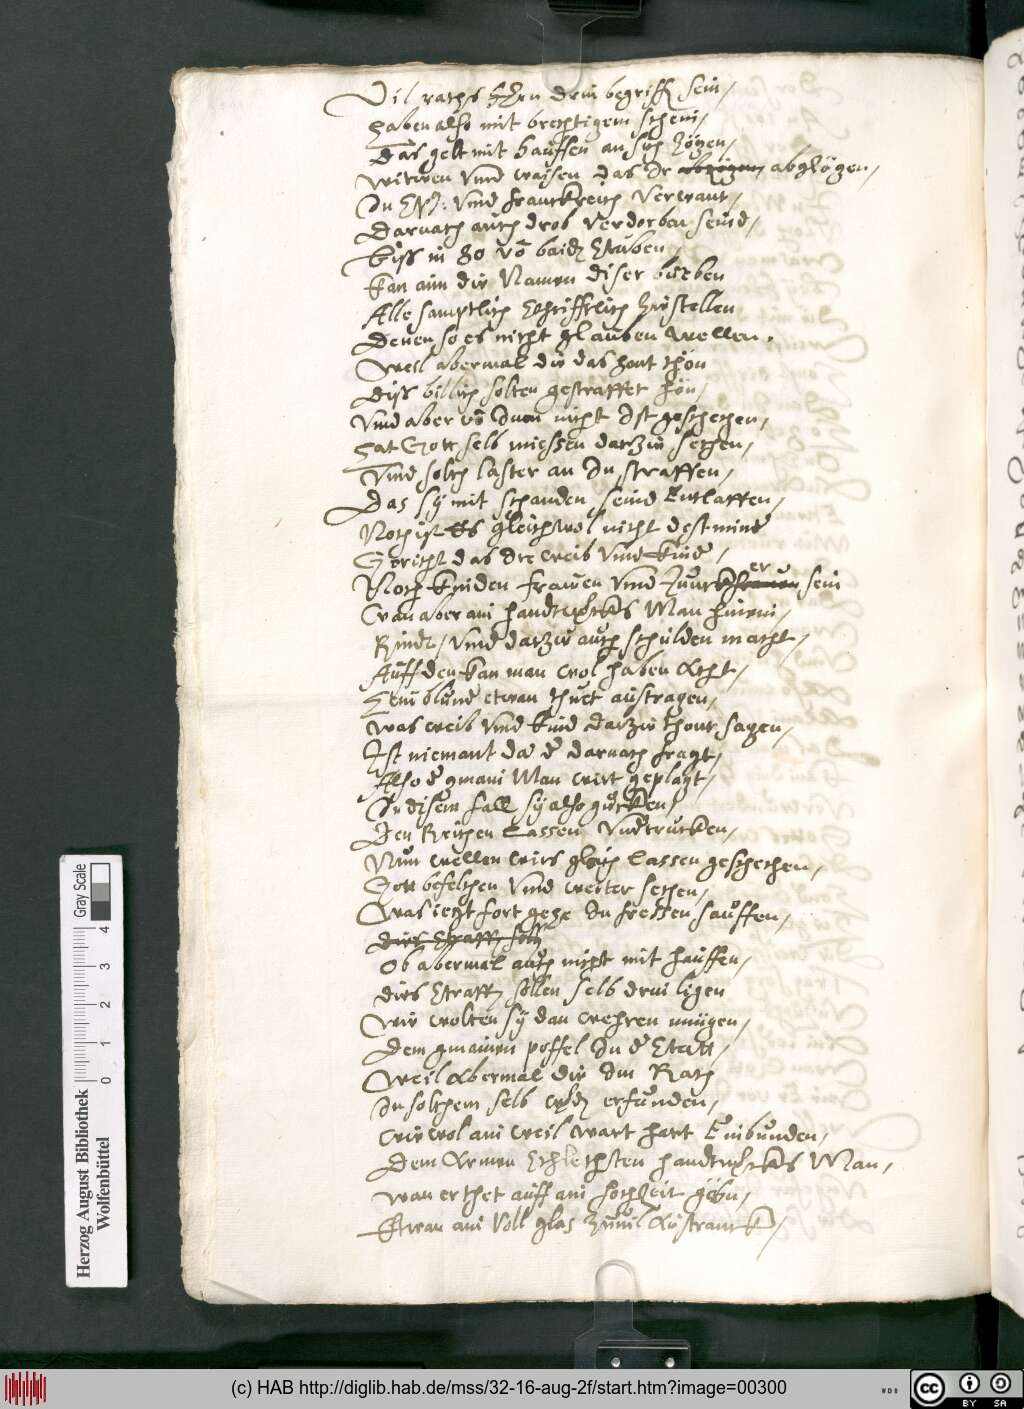 Vil raths H̃ern drin begriff sein /
Haben also mit brechtigem schein /
Das gelt mit hauffen an sych zögen /
Witwen vnnd waisen das Ir abzögen /
In vnnd franckreich verwant /
Darnach auch drob verdorben seind /
biss in 80 võ baid Stuben
kan ain dir Namen diser bueben
Alle samptlich Schrifftlich zuostellen
Denen so es nicht glauben wellen.
Weil abermal die das hont thon
Diss billich solten gestraffet hon /
Vnnd aber võ Inen nicht Ist geschechen /
Hat Gott selb miessen darzuo sechen /
Vnnd solch laster an In straffen /
Das sy mit schanden seind Entlaffen /
Noch ist Es gleichwol nicht dest minder
Gericht das Ire weib vnnd kinder /
Noch kinden frawen vnnd Junckherren sein
Wan aber ain handtwerks Man hinein /
Kindt / vnnd darzuo auch schulden macht /
Auff den kan man wol haben Acht /
Sein blunder etwan thuet austragen /
Was weib vnnd kind darzuo thont sagen /
Ist niemant da der darnach fragt /
Also der gmain Man wirt geplagt /
In disem fall sy also gucken /
Den Reichen lassen vndtrucken /
Nun wellen wirs gleich lassen geschechen /
Gott befelchen vnnd weiter sechen /
Was iezt fort gehe In fressen sauffen /
dies Straff soll
Ob abermal auch nicht mit hauffen /
dies Straff sollen selb drin ligen
Wir wolten sy dan wehren mügen /
Dem gmainen poffel In der Statt /
Weil Abermal die Im Rath
In solchem selb werden erfunden /
Wie wol ain weil wart hart Einbunden /
Dem Armen Schlechsten handtwerks Man /
Wan er thet auff ain hochzeit gehn /
Etwan ain voll glas zuuil Austranck /
Herzog August Bibliothek
Wolfenbüttel
0 1 2 3 4
Gray Scale
(c) HAB http://diglib.hab.de/mss/32-16-aug-2f/start.htm?image=00300
WDB
cc BY SA